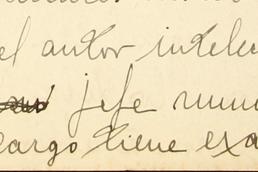 el autor intelec
jefe mun
cargo tiene exa